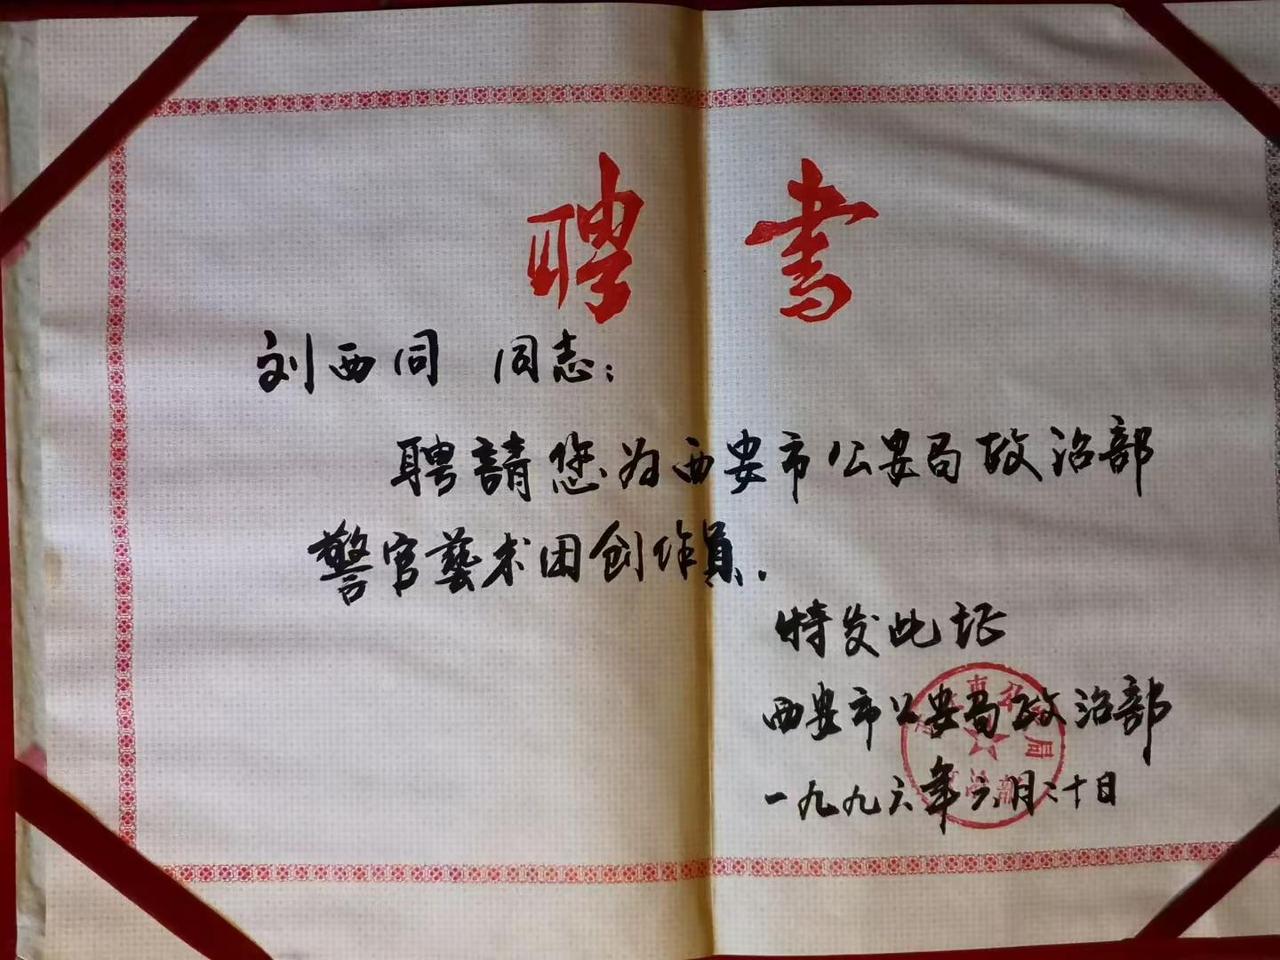 聘書
刘西同 同志：
聘請您为西安市公安局政治部
警官藝术团创作員.
特发此证
西安市公安局政治部
一九九六年六月二十日